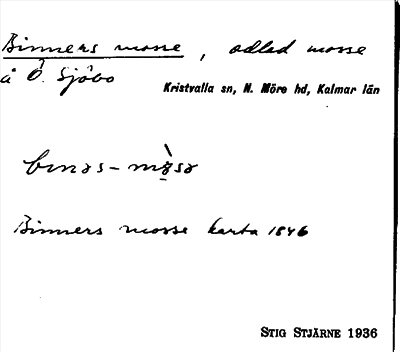 Binners mosse, odlad mosse
å Ö. Sjöbo
Kristvalla sn, N. Möre hd, Kalmar län
Binners mosse karta 1846
STIG STJÄRNE 1936